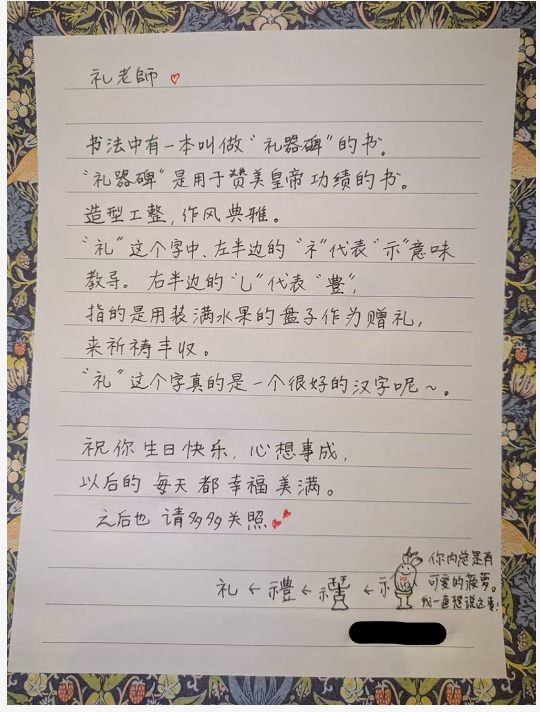 礼老師
书法中有一本叫做“礼器碑”的书。
“礼器碑”是用于赞美皇帝功绩的书。
造型工整，作风典雅。
“礼”这个字中、左半边的“礻”代表“示”意味
教导。右半边的“乚”代表“豊”，
指的是用装满水果的盘子作为赠礼，
来祈祷丰收。
“礼”这个字真的是一个很好的汉字呢～。
祝你生日快乐，心想事成，
以后的每天都幸福美满。
之后也请多多关照
礼←禮←礻←礻
你内总是有
可爱的菠萝。
我一直想说这事！